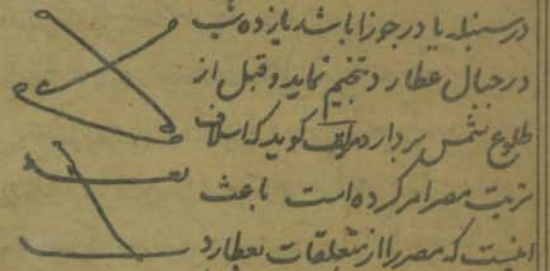 در سنبله یا در جوزا باشد یازده شب
در حبال عطارد تنجیم نماید و قبل از
طلوع شمس بردارد مؤلف کوید که اسلاف
تربت مصر امر کرده است باعث
اینست که مصر را از متعلقات بعطارد